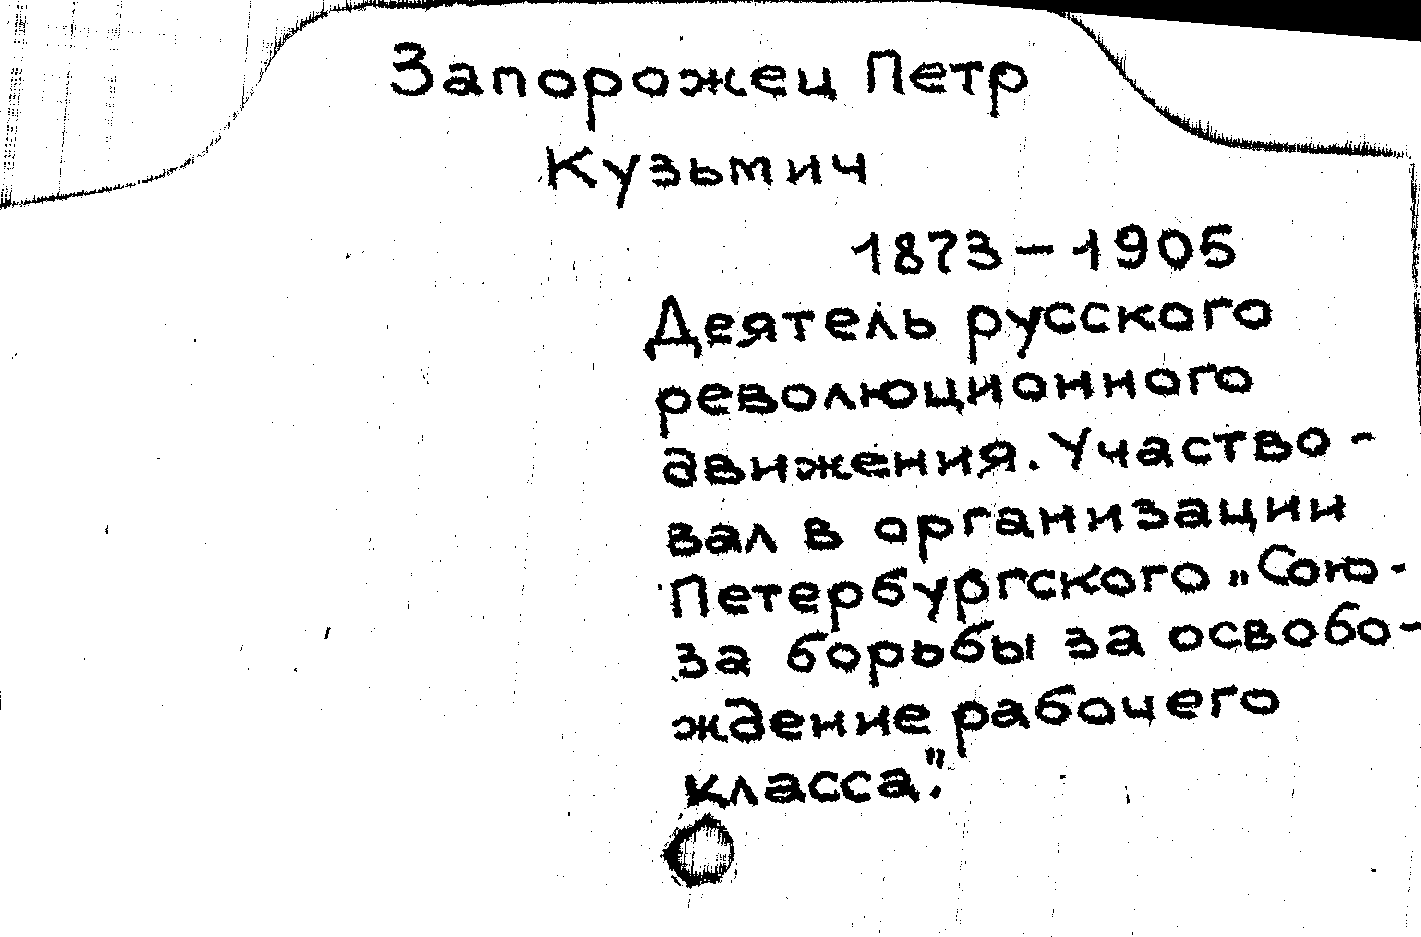 Запорожец Петр
Кузьмич
1873 – 1905
Деятель русского
революционного
движения. Участво-
вал в организации
Петербургского „Сою-
за борьбы за освобо-
ждение рабочего
класса".